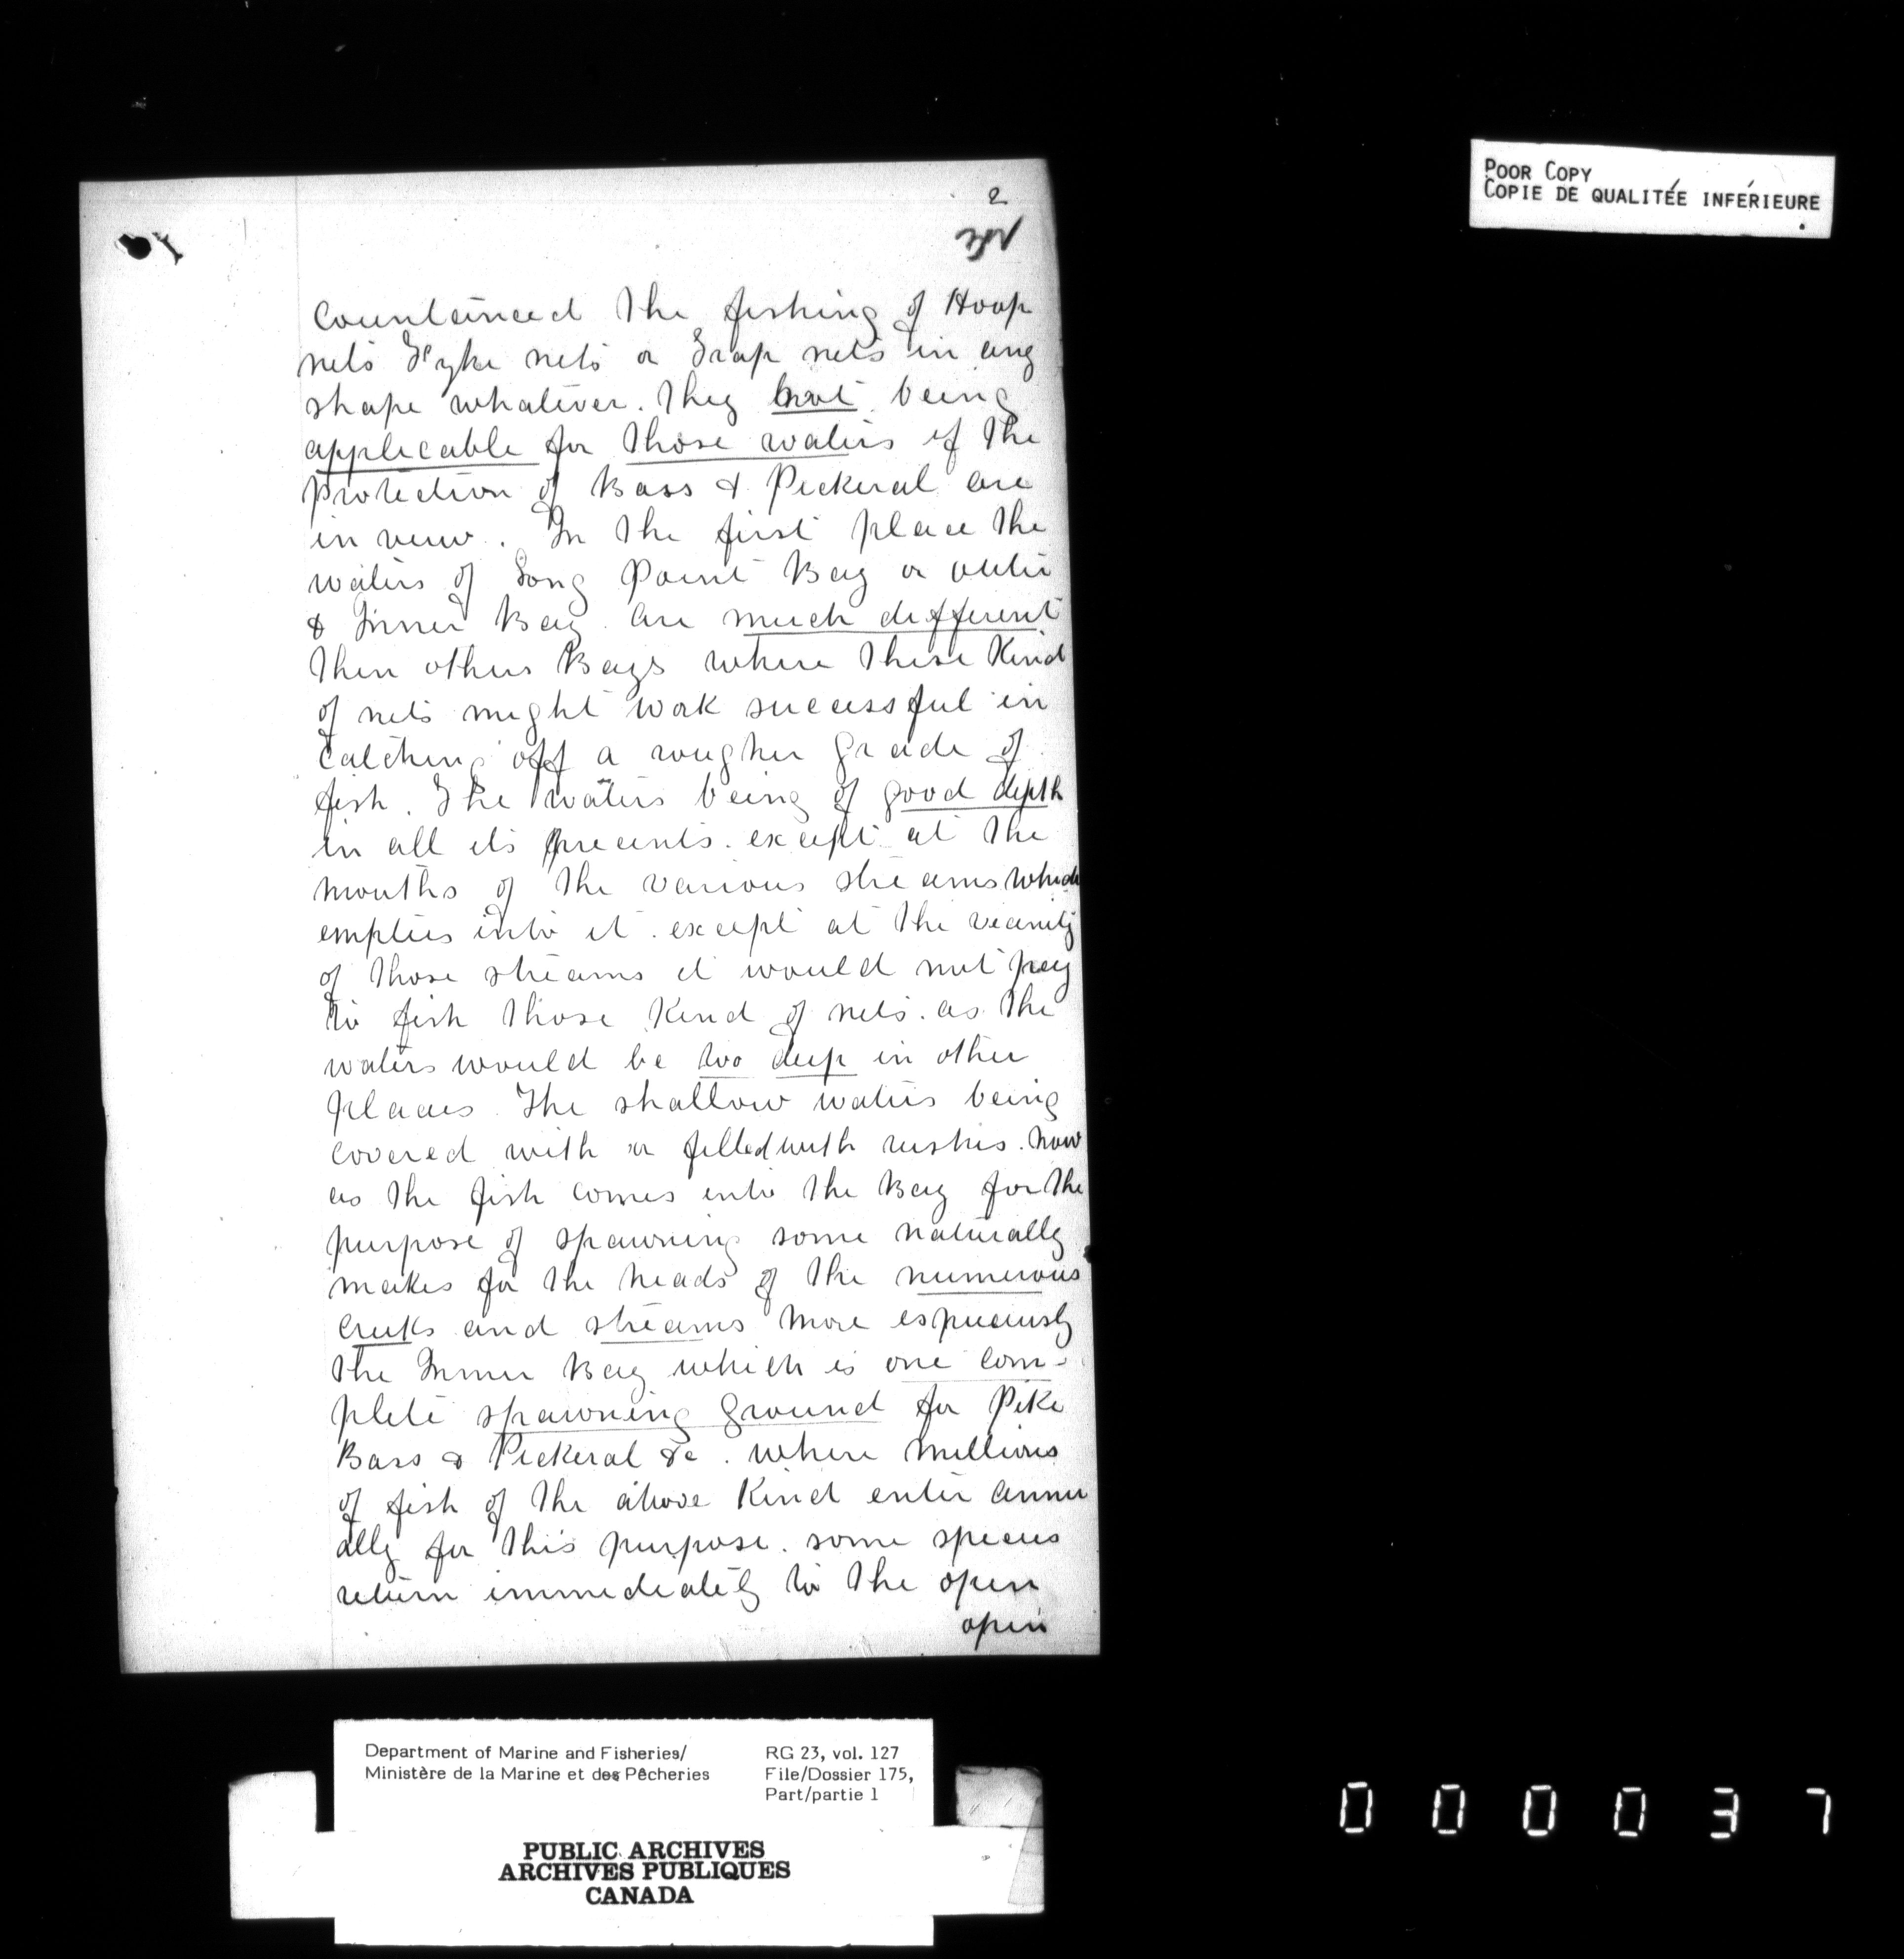 2
POOR COPY
COPIE DE QUALITÉE INFÉRIEURE
countainced the fishing of Hoop
nets Fyke nets or Trap nets in any
shape whatever. They not being
applicable for those waters if the
Protection of Bass & Pickeral are
in veiw. In the first place the
waters of Long Point Bay or outer
& Inner Bay are much different
then others Bays where these Kind
of nets might work successful in
Catching off a rougher grade of
fish. The waters being of good depth
in all its precents. except at the
mouths of the various streams which
empties into it. except at the vicinity
of those streams it would not pay
to fish those Kind of nets. as the
waters would be too deep in other
places. The shallow waters being
covered with or filled with rushes. now
as the fish comes into the Bay for the
purpose of spawning some naturally
makes for the heads of the numerous
creeks and streams more
the Inner Bay which is one com-
plete spawning ground for Pike
Bass & Pickeral &c. where millions
of fish of the above Kind enter annu
ally for this purpose. some species
return immediately to the open
open
Department of Marine and Fisheries/
Ministère de la Marine et des Pêcheries
RG 23, vol. 127
File/Dossier 175,
Part/partie 1
PUBLIC ARCHIVES
ARCHIVES PUBLIQUES
CANADA
000037